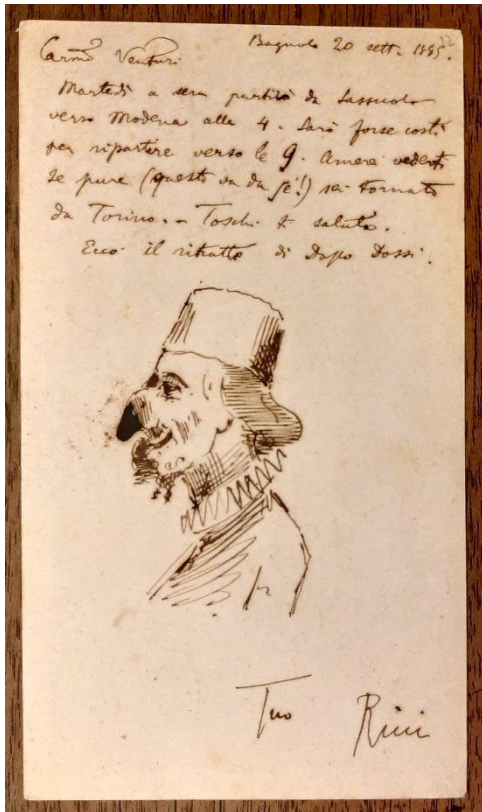 Carmo Venturi
Bagnolo 20 sett. 1885.
Martedì a sera partirò da Sassuolo
verso Modena alle 4. Sarò forse costì
per ripartire verso le 9. Amerei vederti,
se pure (questo va da sé!) sei tornato
da Torino. - Toschi ti saluta.
Ecco il ritratto di Dosso Dossi.
Tuo Ricci